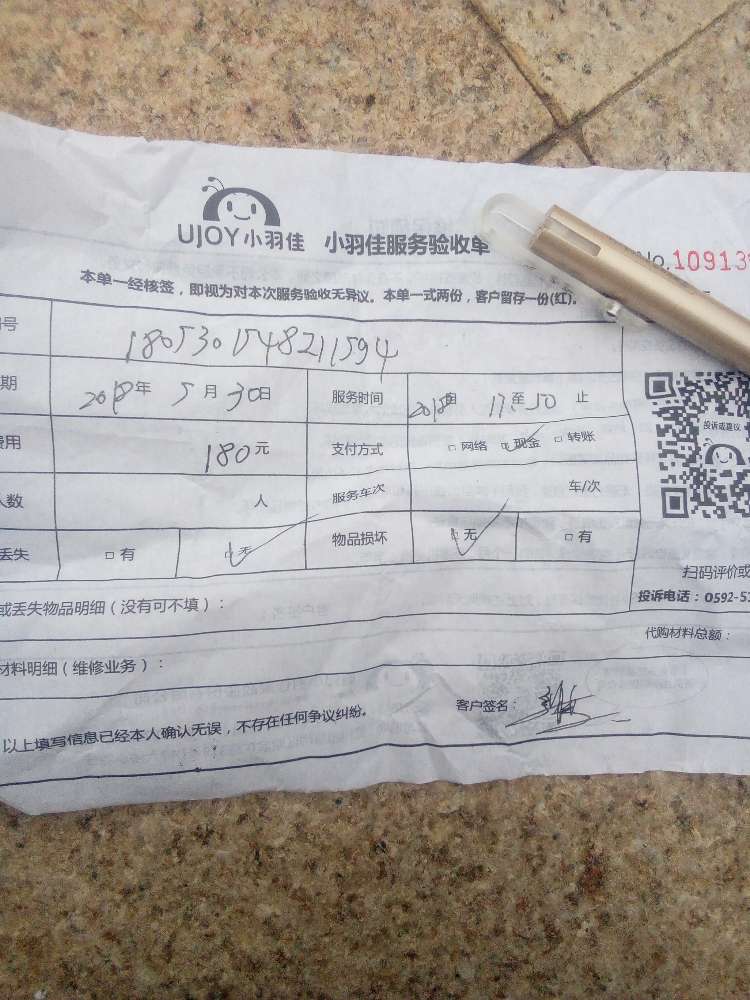 UJOY小羽佳 小羽佳服务验收单
No.10913
本单一经核签，即视为对本次服务验收无异议。本单一式两份，客户留存一份(红)。
号 1805301548211594
期 2018年 5月30日 服务时间 17至50止
费用 180元 支付方式 □网络 ☑现金 □转账
人数 人 服务车次 车/次
丢失 □有 ☑无 物品损坏 ☑无 □有
投诉或建议
扫码评价或
投诉电话：0592-5
或丢失物品明细（没有可不填）：
代购材料总额：
材料明细（维修业务）：
客户签名：
以上填写信息已经本人确认无误，不存在任何争议纠纷。